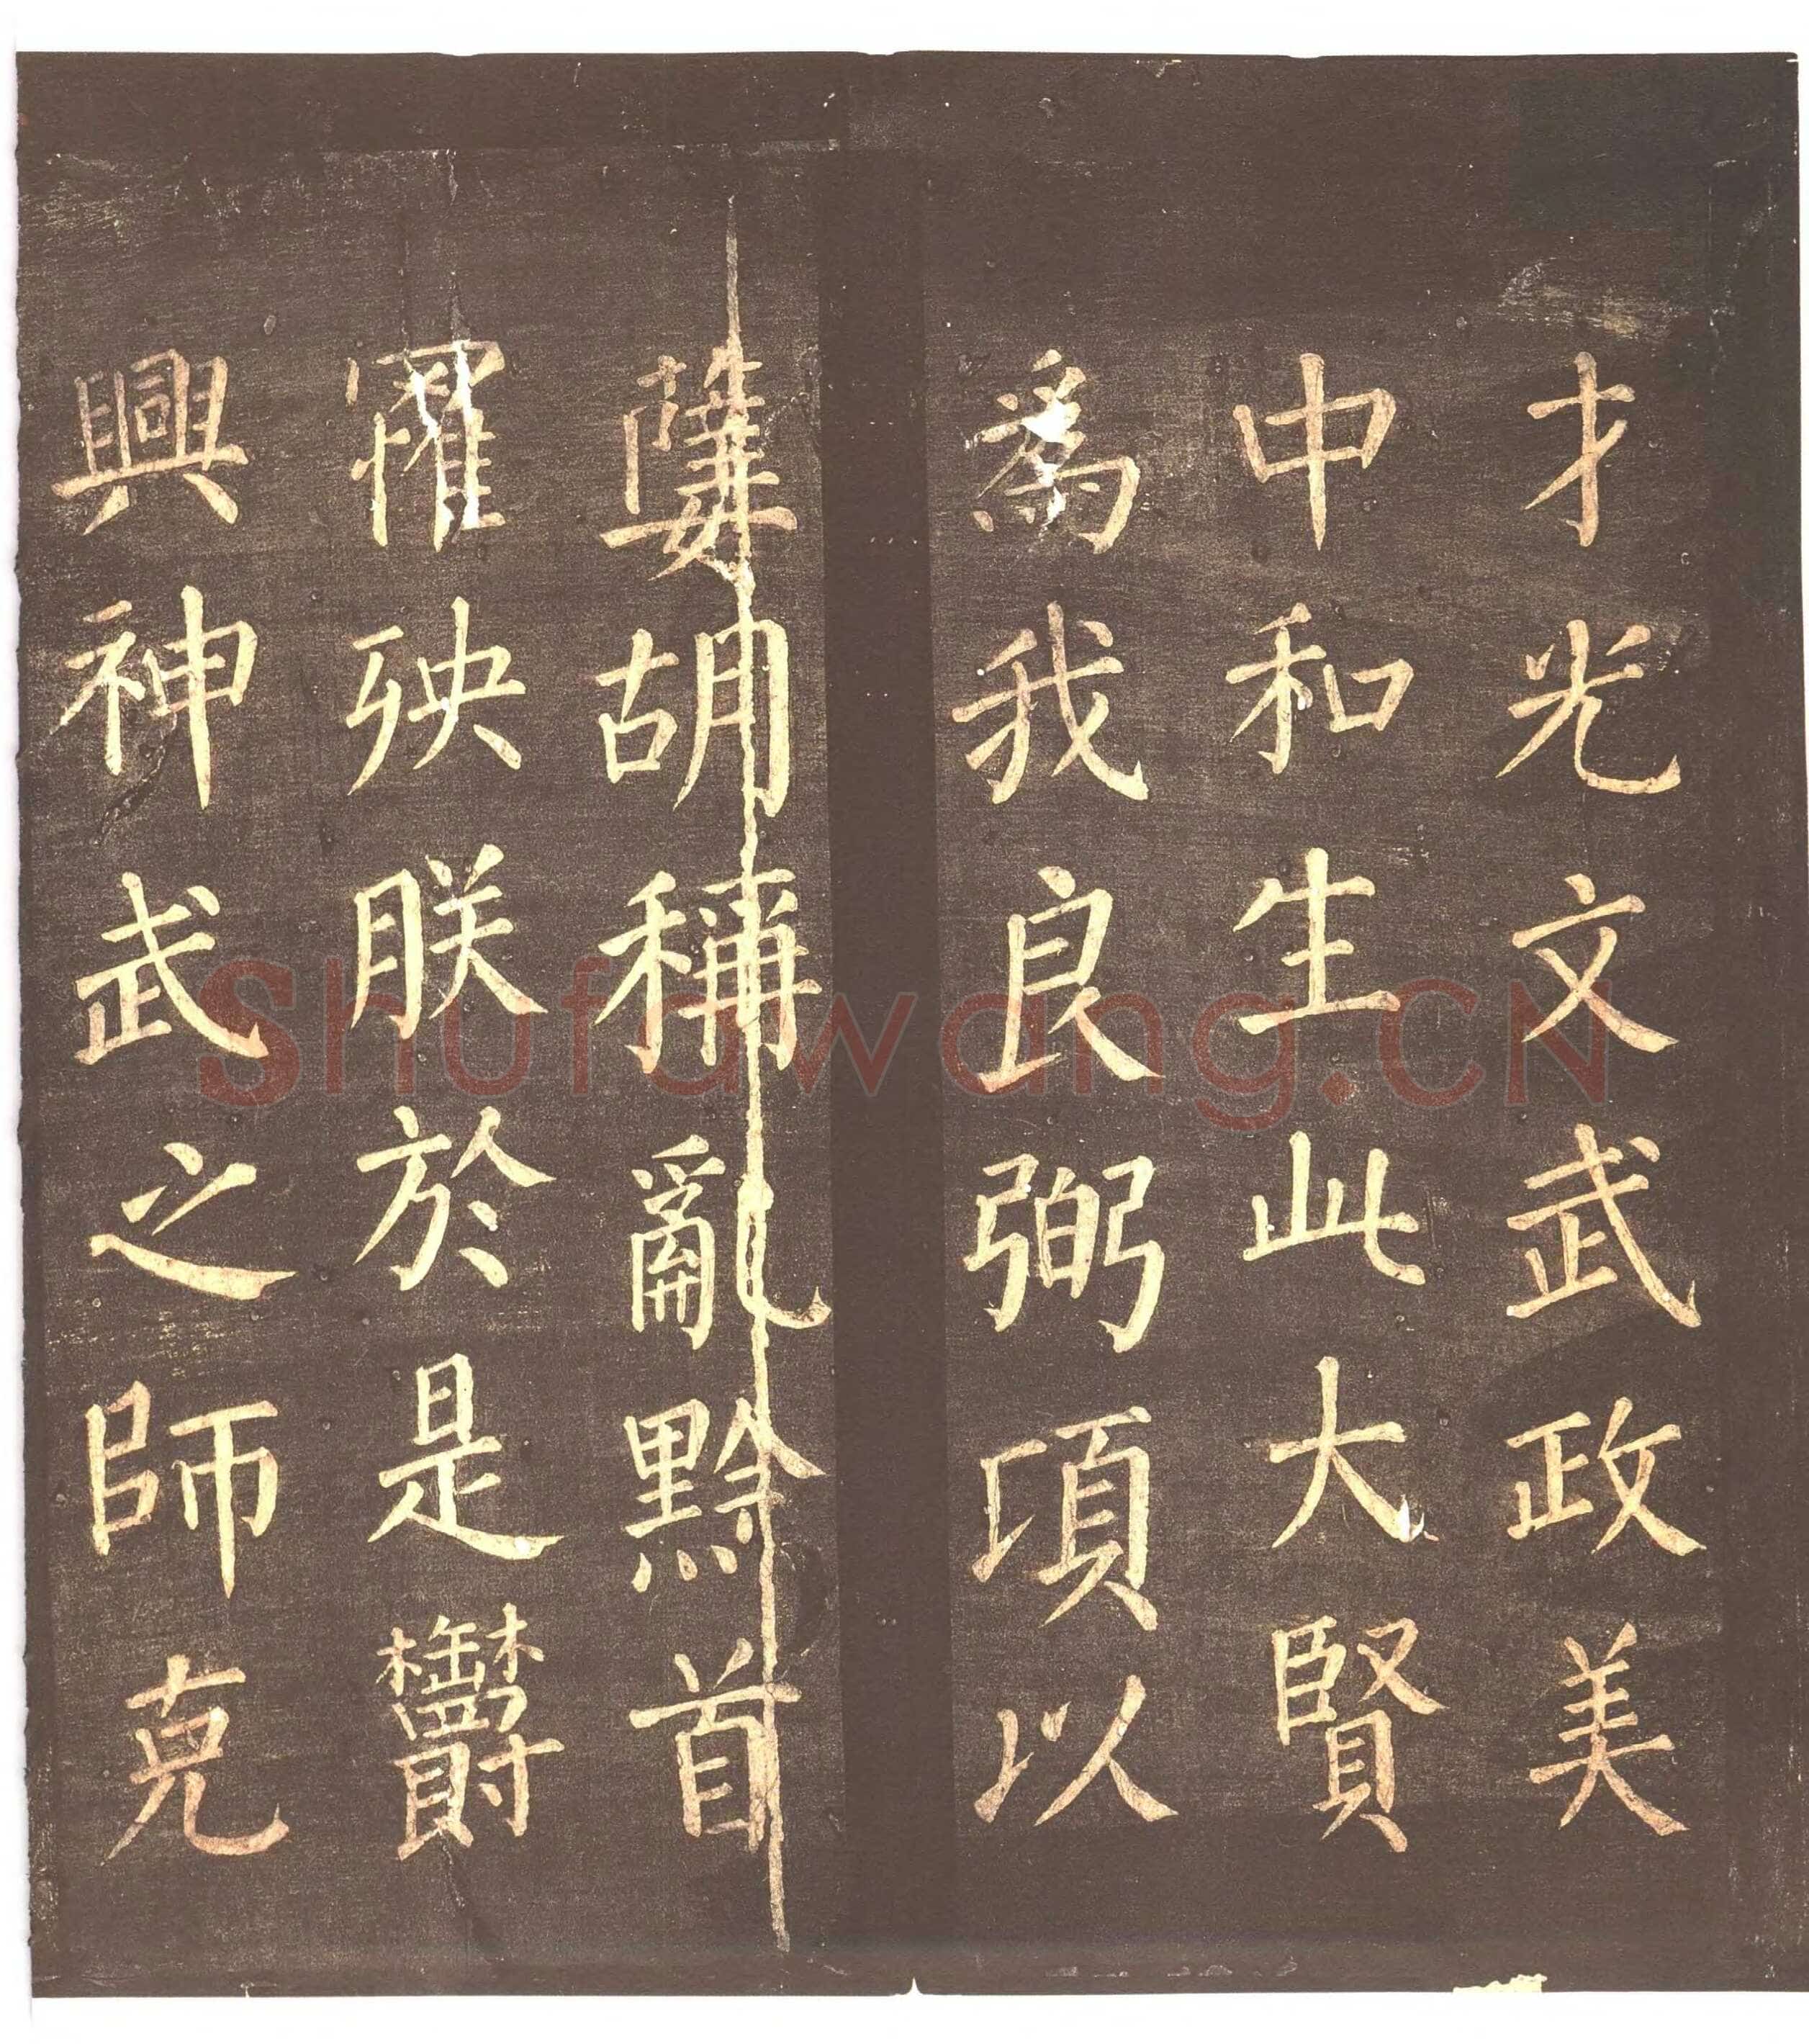 才光文武政美
中和生此大賢
爲我良弼項以
㜸胡稱亂黔首
罹殃朕於是鬱
興神武之師克
Shufawang.CN